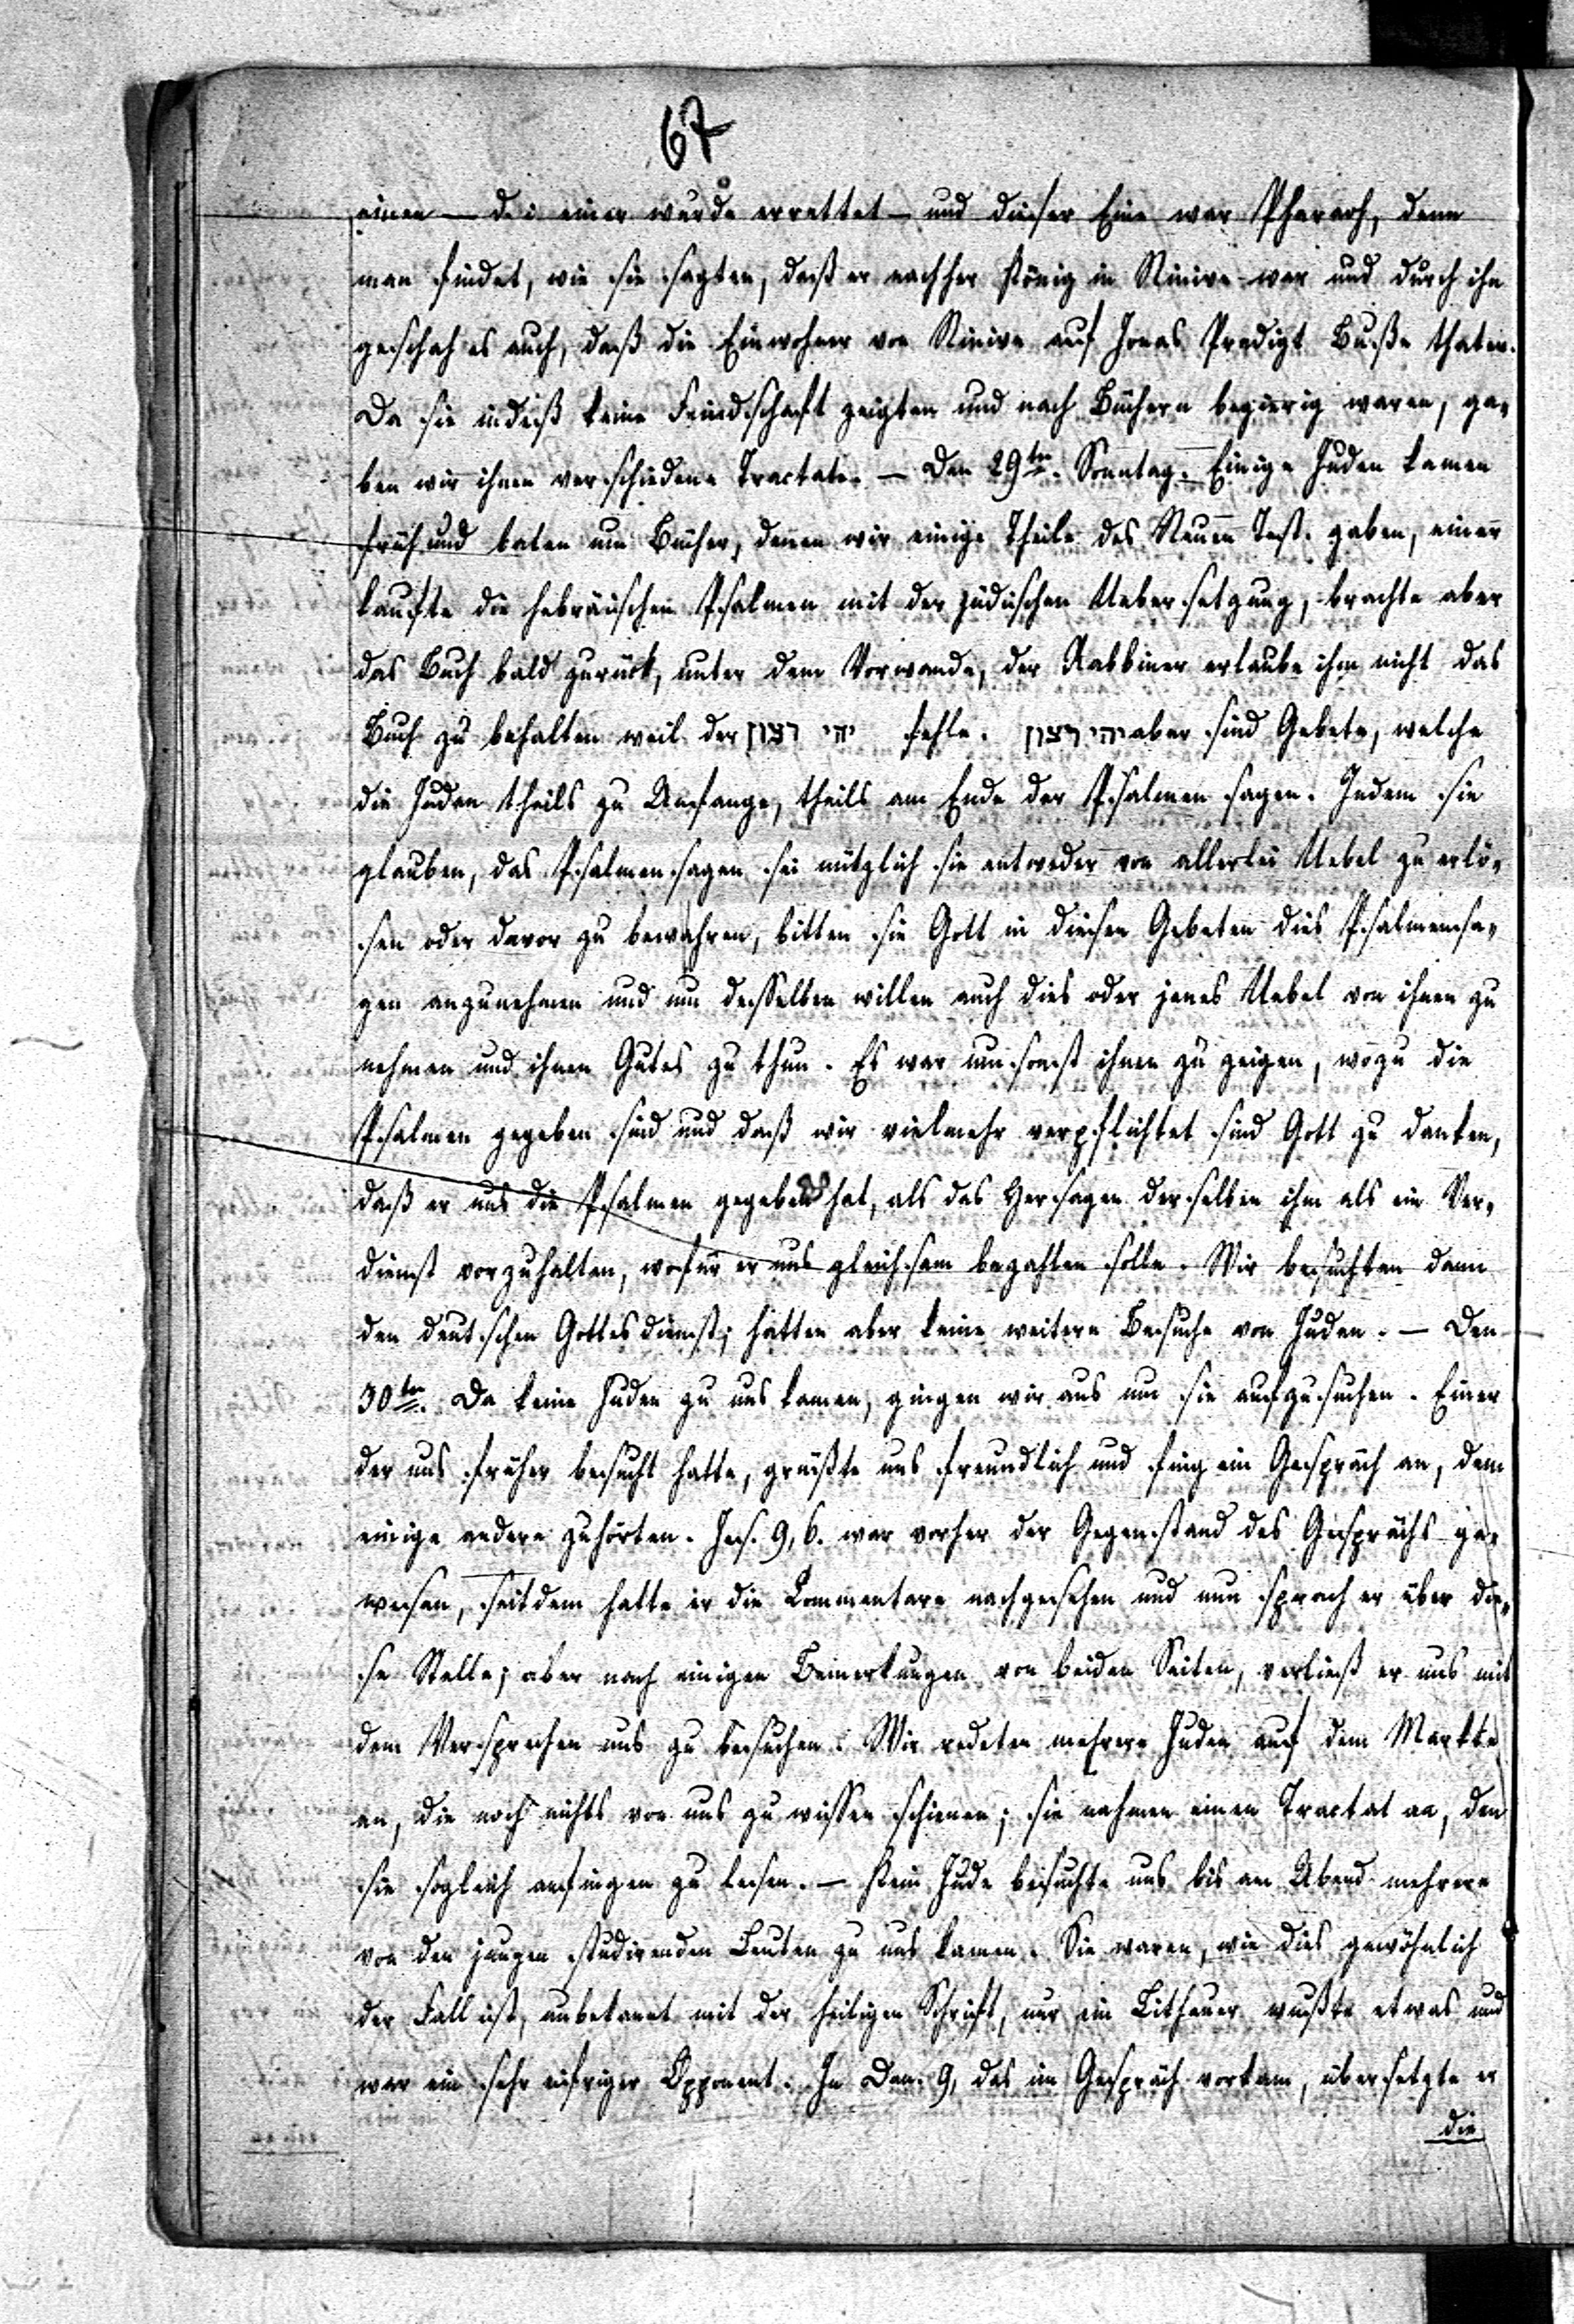 67
einen — d. i. einer wurde errettet — und dieser Eine war Pharaoh, denn
man findet, wie sie sagten, daß er nachher König in Ninive war und durch ihn
geschah es auch, daß die Einwohner von Ninive auf Jonas Predigt Buße thaten.
Da sie indeß keine Feindschaft zeigten und nach Büchern begierig waren, ga-
ben wir ihnen verschiedene Tractate. — Den 29ten. Sonntag. Einige Juden kamen
früh und baten um Bücher, denen wir einige Theile des Neuen Test. gaben, einer
kaufte die hebräischen Psalmen mit der jüdischen Uebersetzung, brachte aber
das Buch bald zurück, unter dem Vorwande, der Rabbiner erlaube ihm nicht das
Buch zu behalten weil der יהי רצון fehle. יהי רצון aber sind Gebete, welche
die Juden theils zu Anfange, theils am Ende der Psalmen sagen. Indem sie
glauben, das Psalmensagen sei nützlich sie entweder von allerlei Uebel zu erlö-
sen oder davor zu bewahren, bitten sie Gott in diesen Gebeten dies Psalmensa-
gen anzunehmen und um desselben willen auch dies oder jenes Uebel von ihnen zu
nehmen und ihnen Gutes zu thun. Es war umsonst ihnen zu zeigen, wozu die
Psalmen gegeben sind und daß wir vielmehr verpflichtet sind Gott zu danken,
daß er uns die Psalmen gegeben hat, als das Hersagen derselben ihm als ein Ver-
dienst vorzuhalten, wofür er uns gleichsam bezahlen solle. Wir besuchten dann
den deutschen Gottesdienst; hatten aber keine weitern Besuche von Juden. — Den
30ten. Da keine Juden zu uns kamen, gingen wir aus um sie aufzusuchen. Einer
der uns früher besucht hatte, grüßte uns freundlich und fing ein Gespräch an, dem
einige andere zuhörten. Jes. 9, 6. war vorher der Gegenstand des Gesprächs ge-
wesen, seitdem hatte er die Commentare nachgesehen und nun sprach er über die-
se Stelle; aber nach einigen Bemerkungen von beiden Seiten, verließ er uns mit
dem Versprechen uns zu besuchen. Wir redeten mehrere Juden auf dem Markte
an, die noch nichts von uns zu wissen schienen; sie nahmen einen Tractat an, den
sie sogleich anfingen zu lesen. — Kein Jude besuchte uns bis am Abend mehrere
von den jungen studirenden Leuten zu uns kamen. Sie waren, wie dies gewöhnlich
der Fall ist, unbekannt mit der heiligen Schrift, nur ein Litheuer wußte etwas und
war ein sehr eifriger Opponent. In Dan. 9, das im Gespräch vorkam, übersetzte er
die